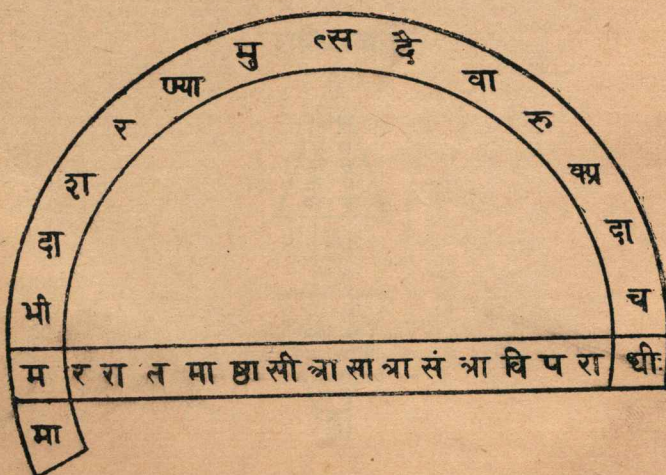 भी दा श र ण्या मु त्स दै वा रु क्प्र दा च
म र रा त मा ष्ठा सी त्त्रा सा त्रा सं त्रा वि प रा धीः
मा